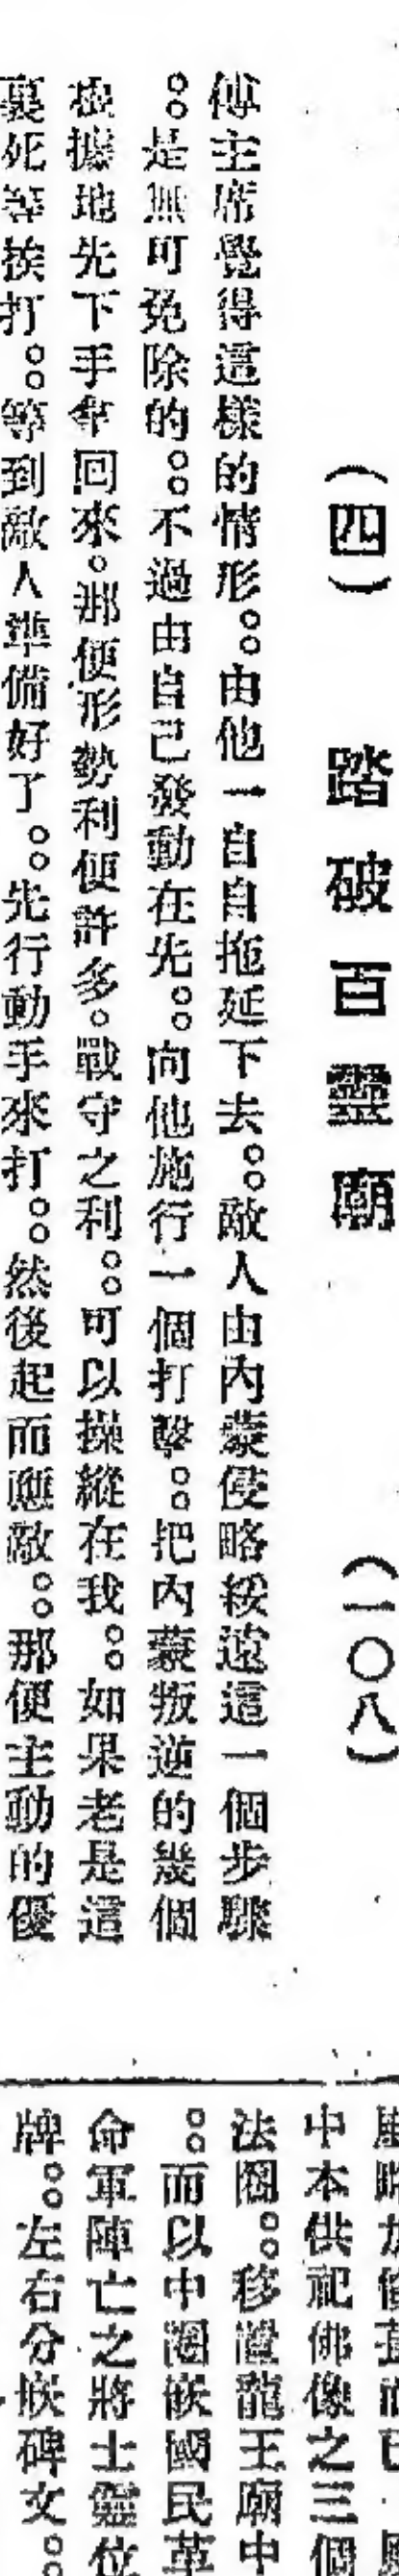 (四) 踏破百靈廟 (一〇八)
傅主席覺得這樣的情形。。由他一自自拖延下去。。敵人由內蒙侵略綏遠這一個步驟
。。是無可免除的。。不過由自己發動在先。。向他施行一個打擊。。把內蒙叛逆的幾個
根據地先下手拿回來。那便形勢利便許多。戰守之利。。可以操縱在我。。如果老是這
裏死等挨打。。等到敵人準備好了。。先行動手來打。。然後起而應敵。。那便主動的優
中本供祀佛像之三個
法圈。。移置龍王廟中
。。而以中圈嵌國民革
命軍陣亡之將士靈位
牌。。左右分嵌碑文。。